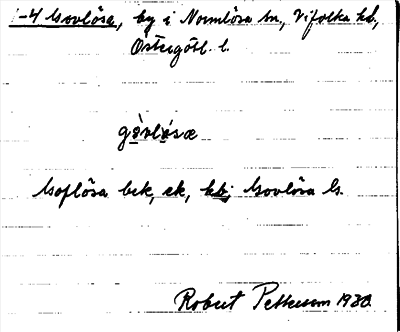 1-4 Govlösa, by i Normlösa sn, Vifolka hd,
Östergötl. l.
gòvlösæ
Goflösa bek, ek, kb; Govlösa Gs.
Robert Pettersson 1930.